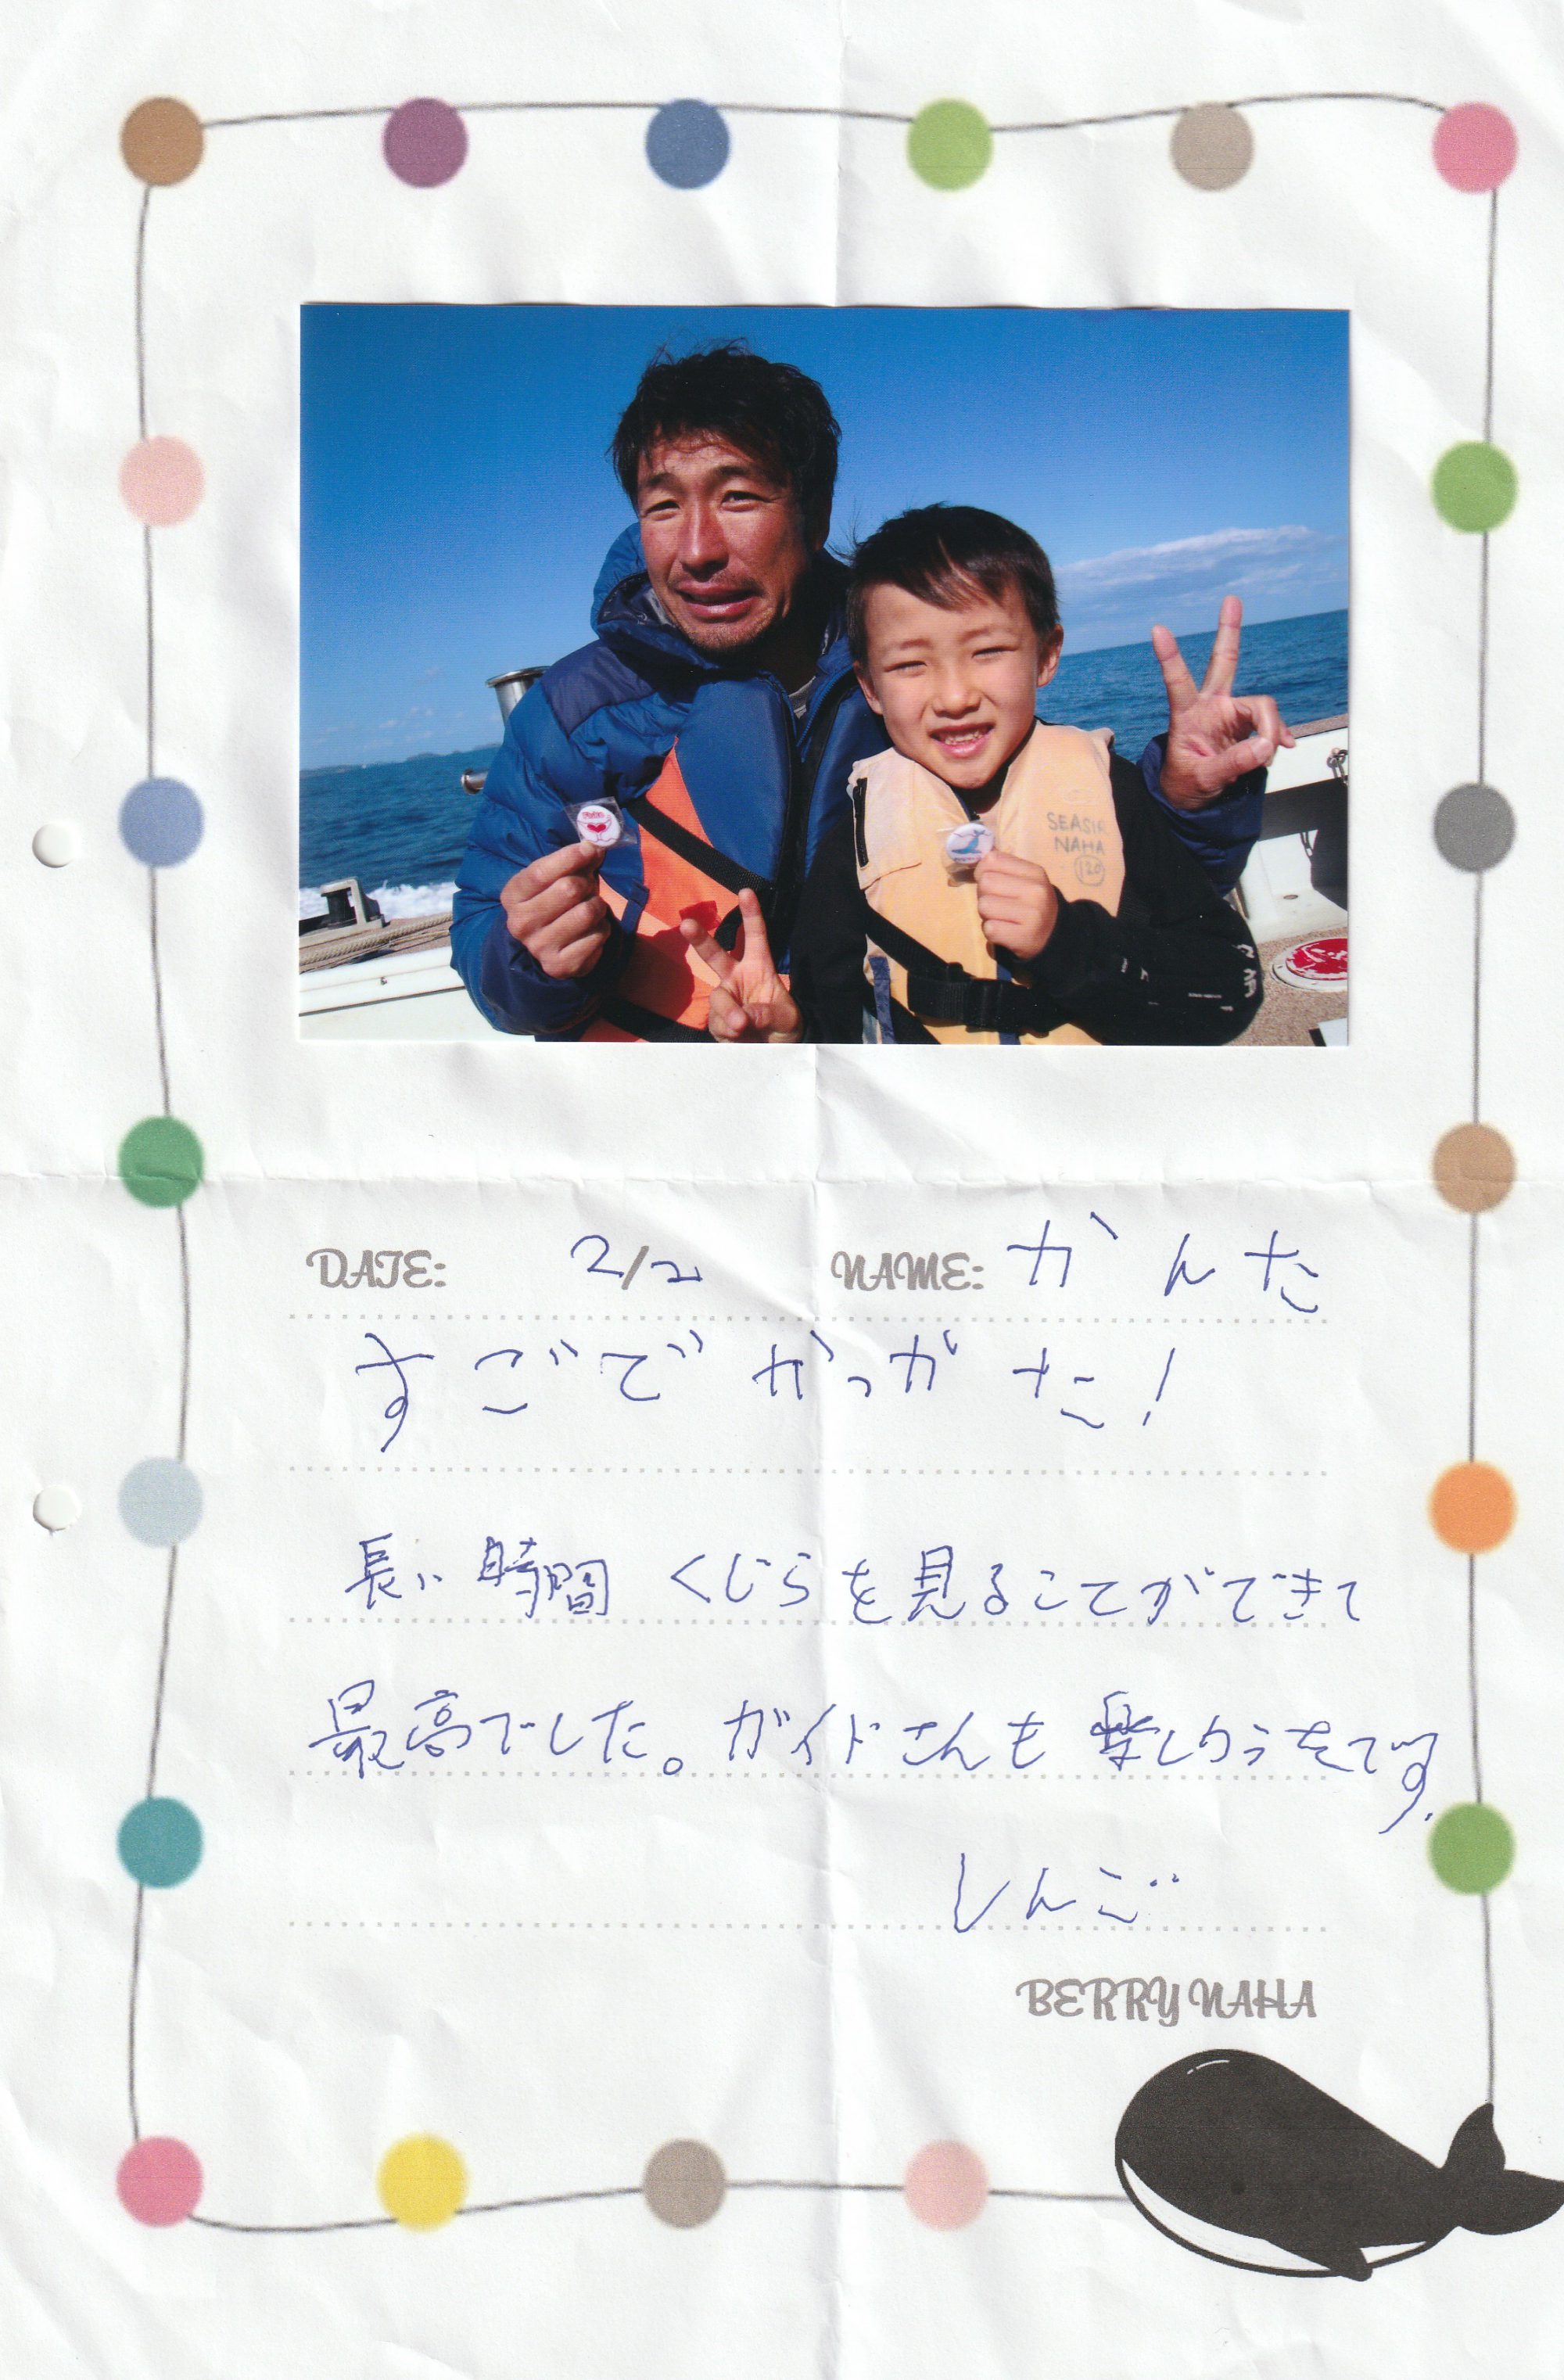 SEASIR
NAHA
120
DATE: 2/2 NAME: かんた
すごでかっがた!
長い時間 くじらを見ることができて
最高でした。ガイドさんも楽しかったです。
しんご
BERRY NAHA